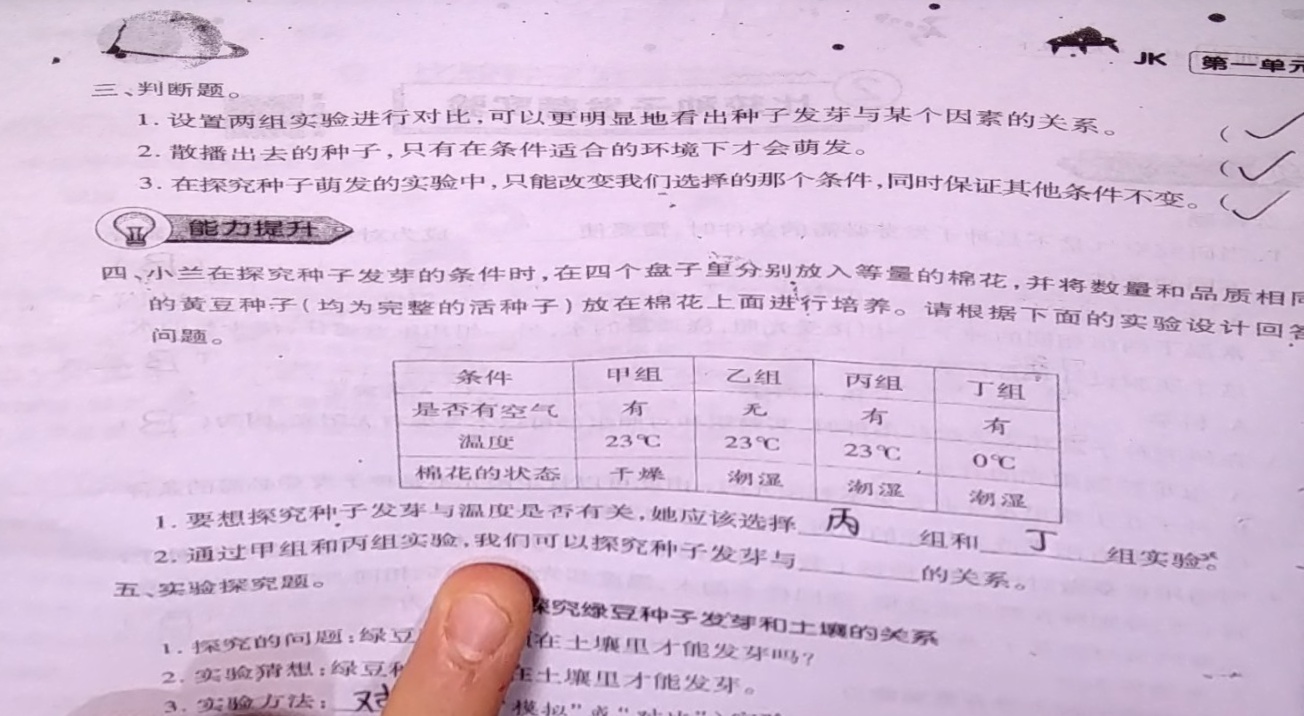 JK 第一单元
三、判断题。
1. 设置两组实验进行对比,可以更明显地看出种子发芽与某个因素的关系。 ( ✓
2. 散播出去的种子,只有在条件适合的环境下才会萌发。 ( ✓
3. 在探究种子萌发的实验中,只能改变我们选择的那个条件,同时保证其他条件不变。 ( ✓
能力提升
四、小兰在探究种子发芽的条件时,在四个盘子里分别放入等量的棉花,并将数量和品质相同
的黄豆种子(均为完整的活种子)放在棉花上面进行培养。请根据下面的实验设计回答
问题。
条件 甲组 乙组 丙组 丁组
是否有空气 有 无 有 有
温度 23℃ 23℃ 23℃ 0℃
棉花的状态 干燥 潮湿 潮湿 潮湿
1. 要想探究种子发芽与温度是否有关,她应该选择 丙 组和 丁 组实验。
2. 通过甲组和丙组实验,我们可以探究种子发芽与 的关系。
五、实验探究题。
探究绿豆种子发芽和土壤的关系
1. 探究的问题:绿豆 在土壤里才能发芽吗?
2. 实验猜想:绿豆 在土壤里才能发芽。
3. 实验方法: 对 "模拟"或"对比"